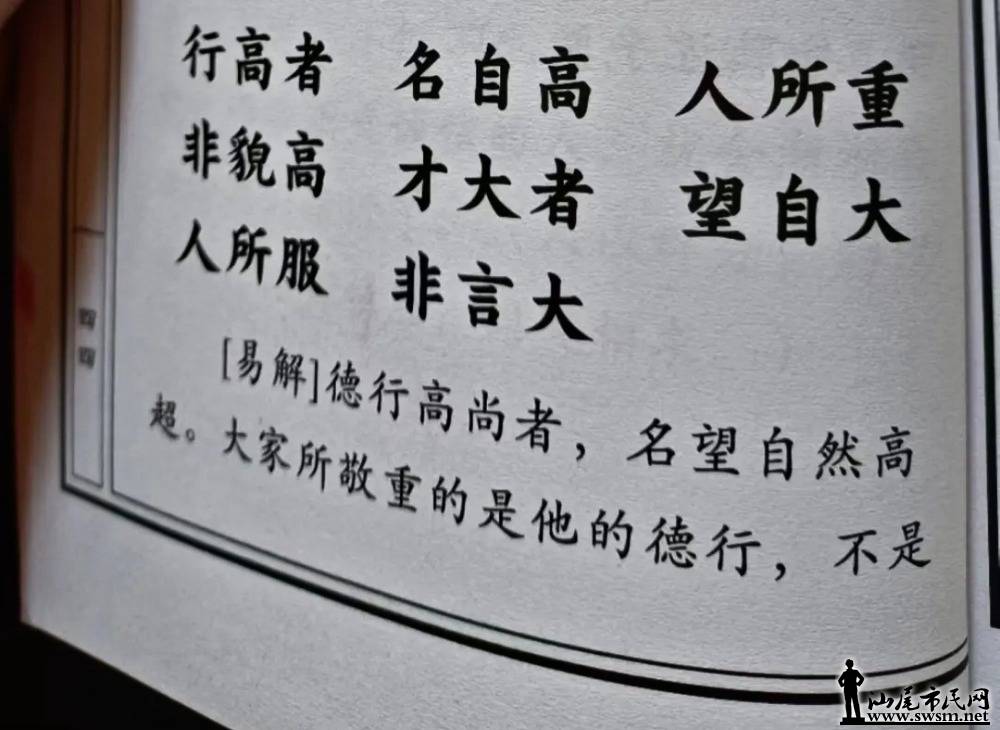 行高者 名自高 人所重
非貌高 才大者 望自大
人所服 非言大
[易解]德行高尚者，名望自然高
超。大家所敬重的是他的德行，不是
汕尾市民网
www.swsm.net